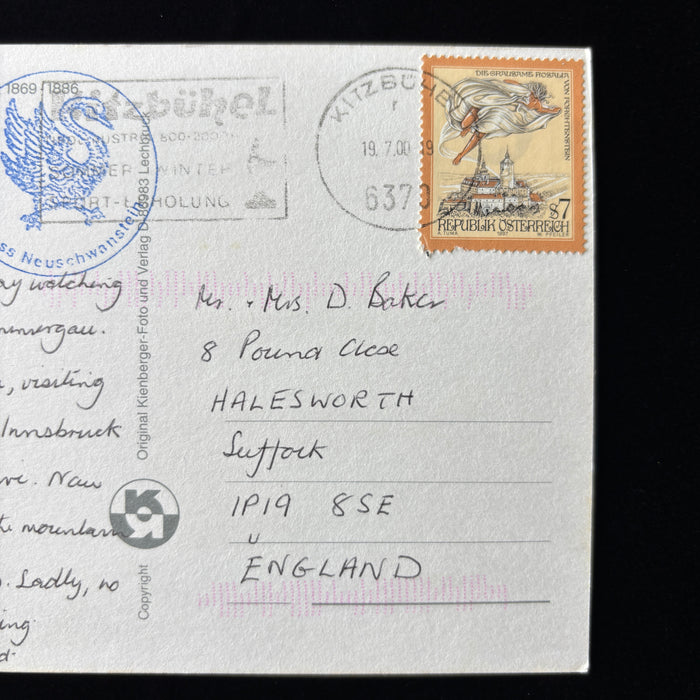 1869 - 1886
Kitzbühel
SOMMER - WINTER
SPORT - ERHOLUNG
ss Neuschwanstein
KITZBÜHE
19. 7.00
6370
DIE GRAUSAME ROSALIA
VON FORCHTENSTEIN
S7
REPUBLIK ÖSTERREICH
A. TUMA 1997 W. PFEILER
Original Kienberger-Foto und Verlag D-86983 Lechbruck
Copyright
ay watching
mmergau.
, visiting
Innsbruck
ve. Now
the mountain
. Sadly, no
ing
d.
Mr. + Mrs. D. Baker
8 Pound Close
HALESWORTH
Suffolk
IP19 8SE
ENGLAND